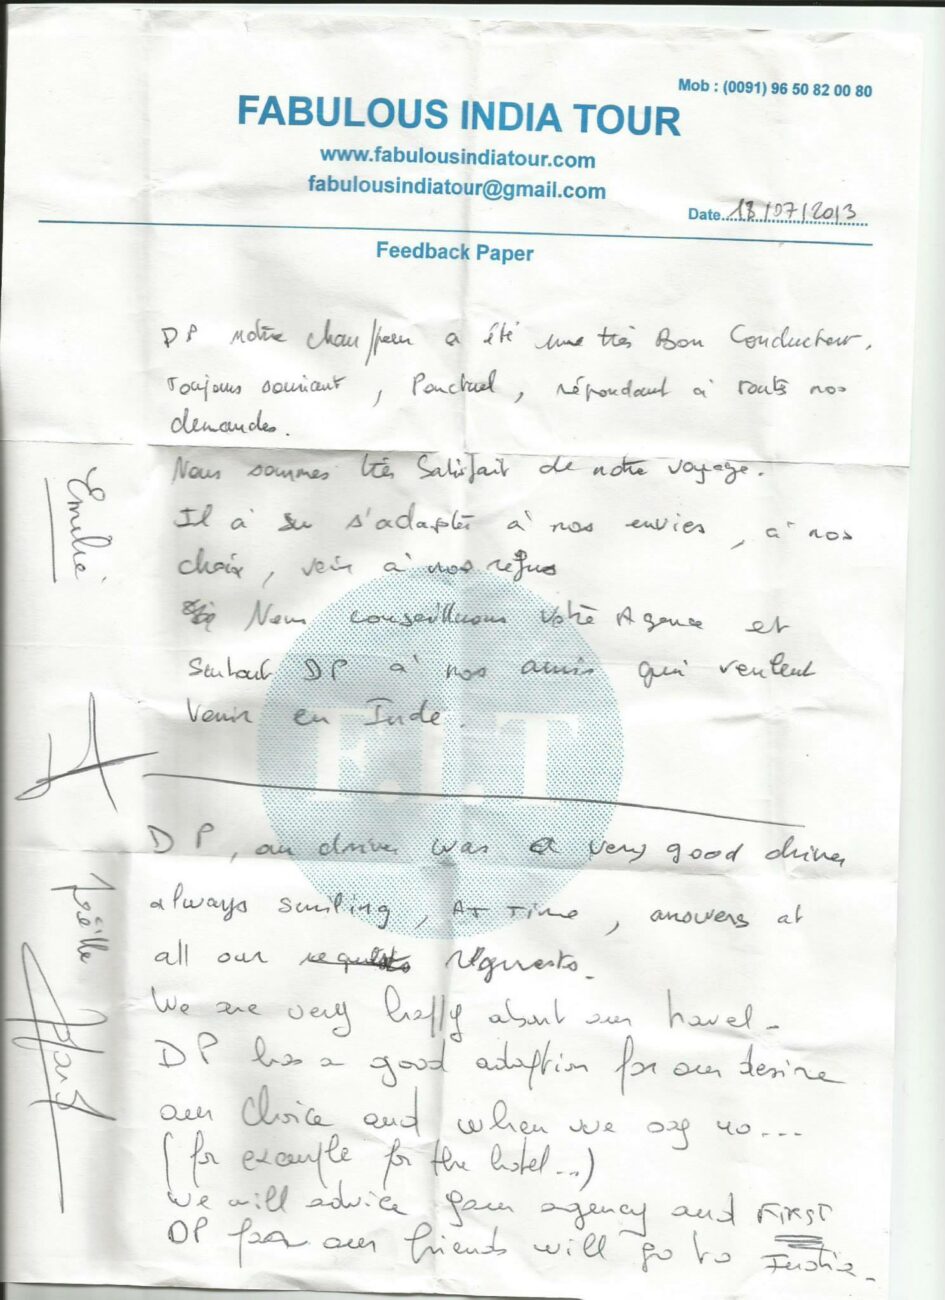 Mob : (0091) 96 50 82 00 80
FABULOUS INDIA TOUR
www.fabulousindiatour.com
fabulousindiatour@gmail.com
Date 18/07/2013
Feedback Paper
DP notre chauffeur a été une très Bon Conducteur.
Toujours souriant, Ponctuel, répondant à toute nos
demandes.
Nous sommes très Satisfait de notre voyage.
Il à su s'adapter à nos envies, à nos
choix, voir à nos refus
Nous conseillerons Votre Agence et
Surtout DP à nos amis qui veulent
Venir en Inde.
Emilie
F.I.T
DP, our driver was a very good driver
always smiling, AT TIME, answers at
all our requests.
We are very happy about our travel.
DP has a good adaption for our desire
our choice and when we say no...
(for example for the hotel...)
We will advice your agency and FIRST
DP for our friends will go to India.
Joëlle